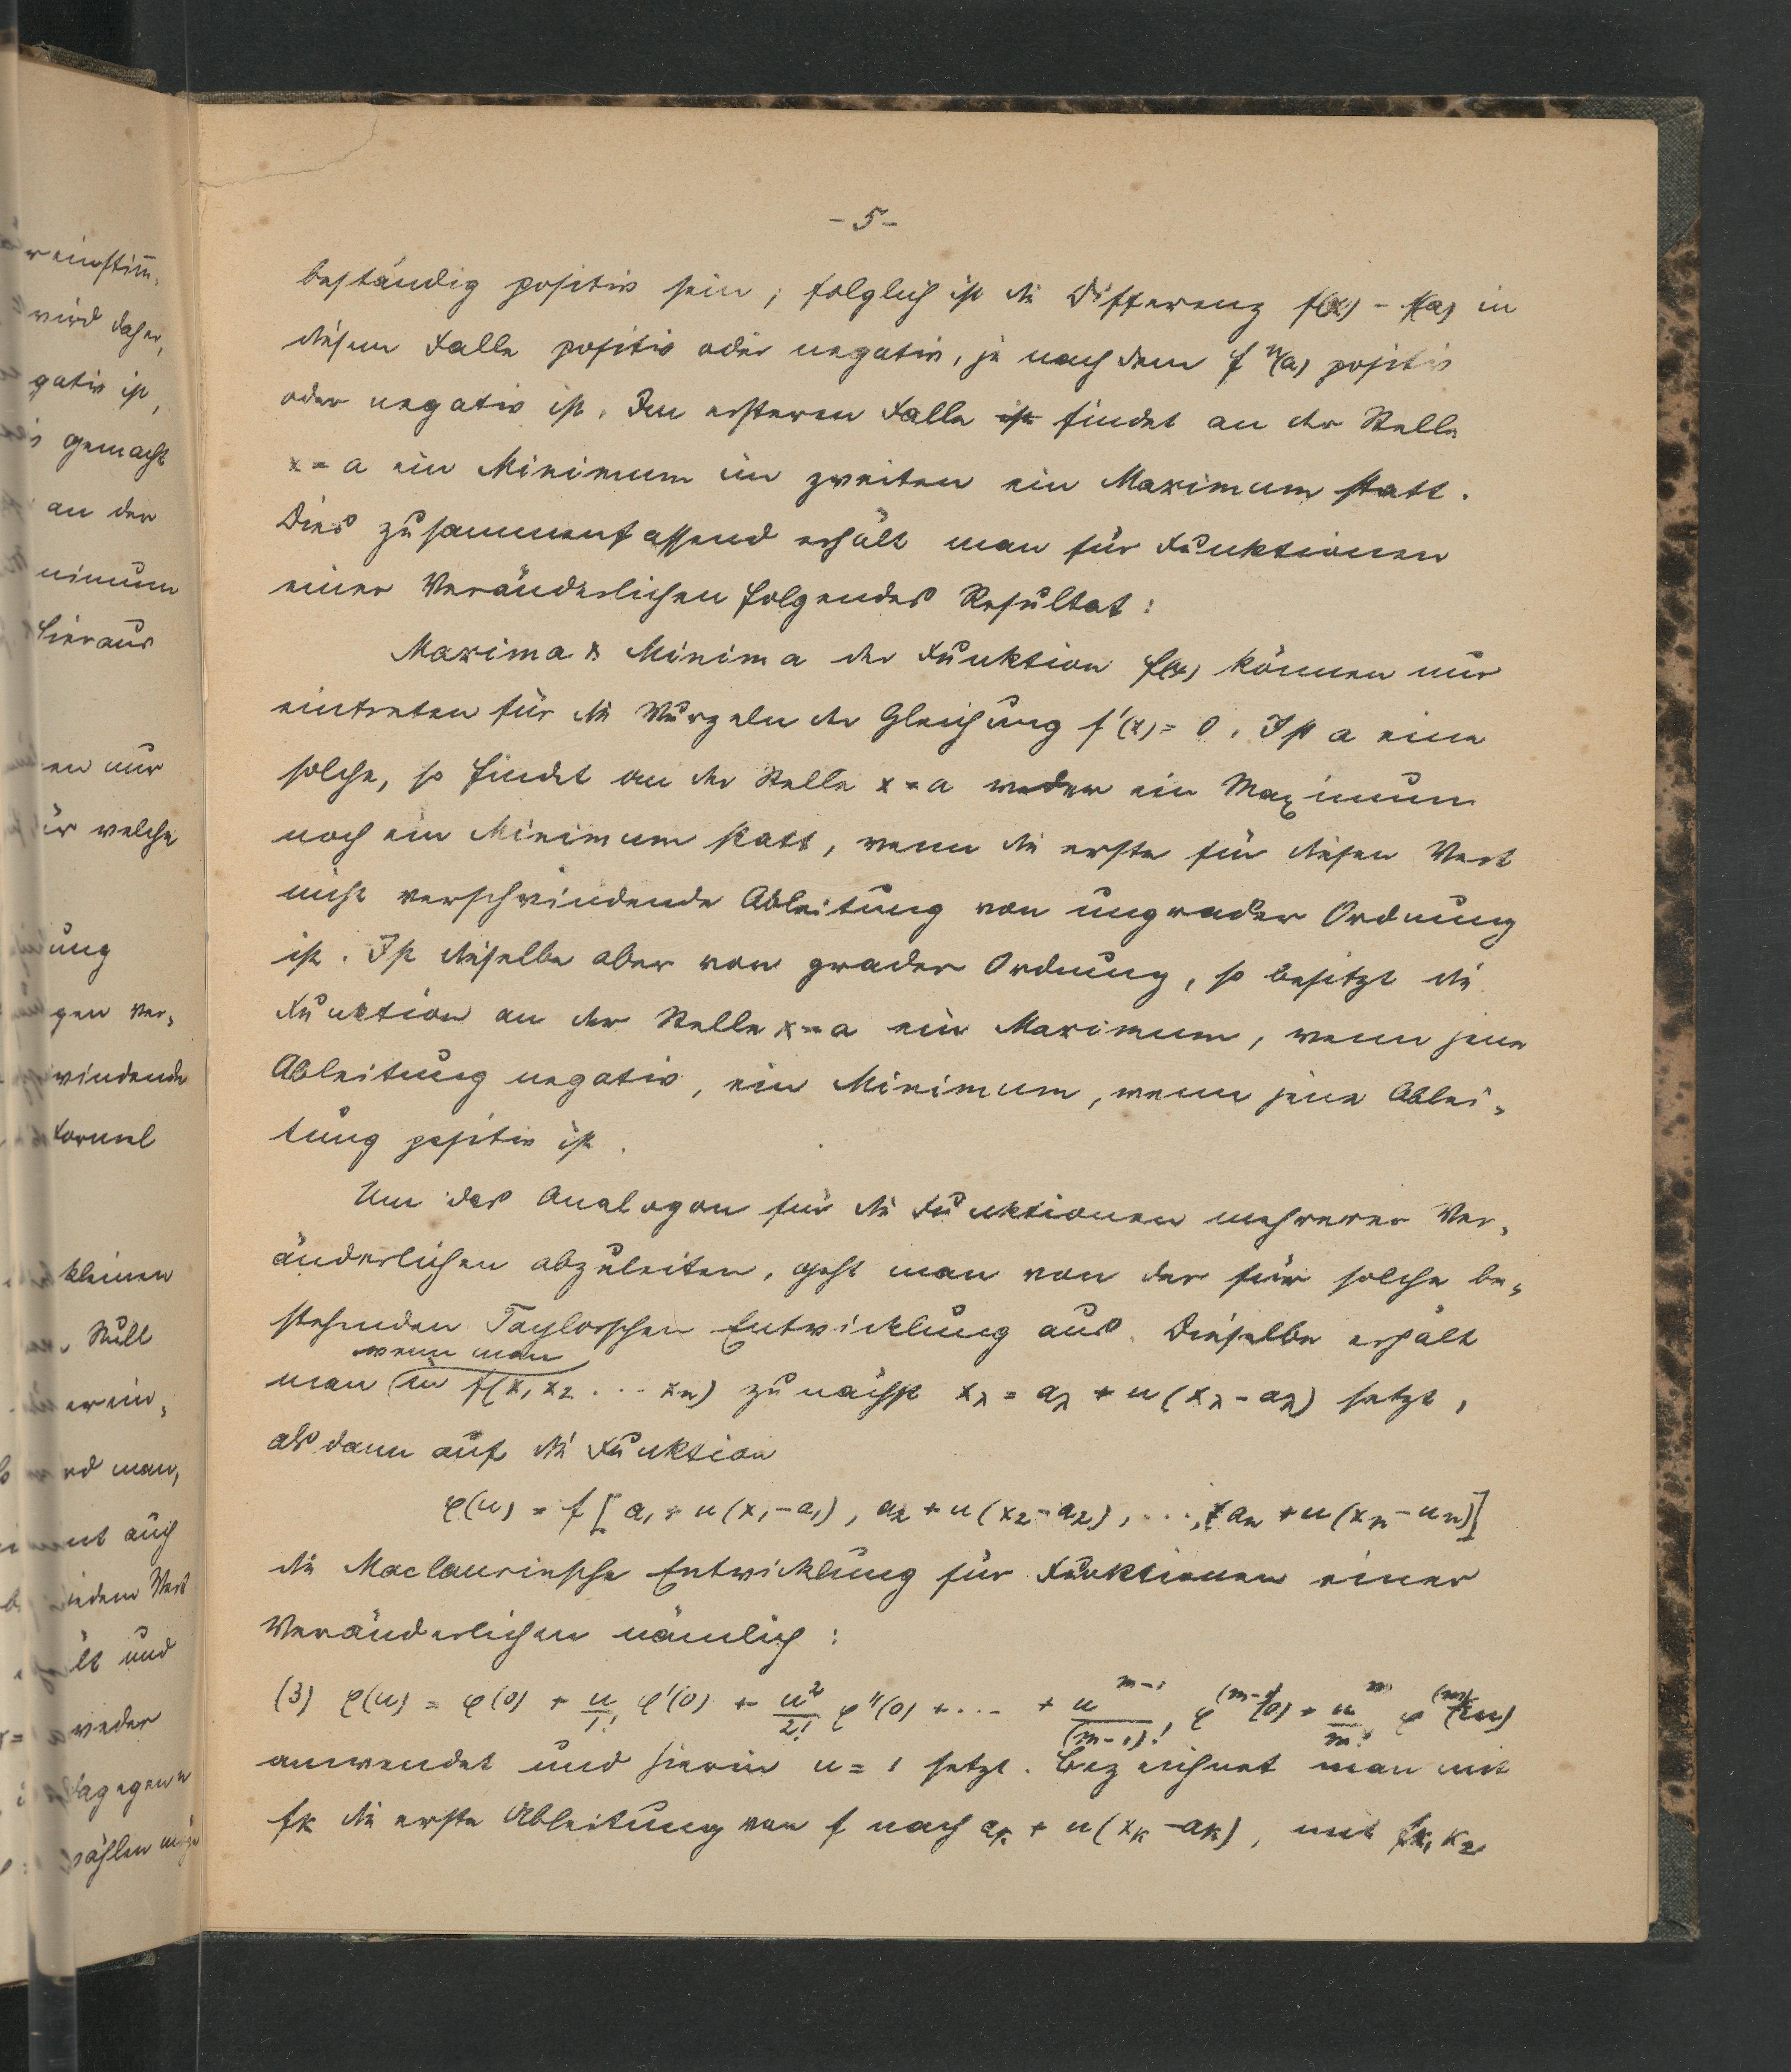 reinstim-
wird daher,
gativ ist,
gemacht
an der
nimum
hieraus
en nur
für welche
ung
gen ver-
windende
Formel
kleinen
Null
erin-
rd man,
auch
jeden Wert
und
weder
dagegen
wählen
- 5 -
beständig positiv sein; folglich ist die Differenz f(x) - f(a) in
diesem Falle positiv oder negativ, je nach dem f ⁿ(a) positiv
oder negativ ist. Im ersteren Falle ist findet an der Stelle
x = a ein Minimum im zweiten ein Maximum statt.
Dies zusammenfassend erhält man für Funktionen
einer Veränderlichen folgendes Resultat:
Maxima & Minima der Funktion f(x) können nur
eintreten für die Wurzeln der Gleichung f'(x) = 0. Ist a eine
solche, so findet an der Stelle x = a weder ein Maximum
noch ein Minimum statt, wenn die erste für diesen Wert
nicht verschwindende Ableitung von ungrader Ordnung
ist. Ist dieselbe aber von grader Ordnung, so besitzt die
Funktion an der Stelle x = a ein Maximum, wenn jene
Ableitung negativ, ein Minimum, wenn jene Ablei-
tung positiv ist.
Um das Analogon für die Funktionen mehrerer Ver-
änderlichen abzuleiten, geht man von der für solche be-
stehenden Taylorschen Entwicklung aus. Dieselbe erhält
wenn man
man in f(x₁ x₂ ... xₙ) zunächst x_λ = a_λ + u(x_λ - a_λ) setzt,
alsdann auf die Funktion
φ(u) = f[a₁ + u(x₁ - a₁), a₂ + u(x₂ - a₂), ..., aₙ + u(xₙ - aₙ)]
die Maclaurinsche Entwicklung für Funktionen einer
Veränderlichen nämlich:
(3) φ(u) = φ(0) + u/1! φ'(0) + u²/2! φ''(0) + ... + u^(m-1)/(m-1)! φ^(m-1)(0) + u^m/m! φ^(m)(εu)
anwendet und hierin u = 1 setzt. Bezeichnet man mit
f_k die erste Ableitung von f nach a_k + u(x_k - a_k), mit f_k₁ k₂